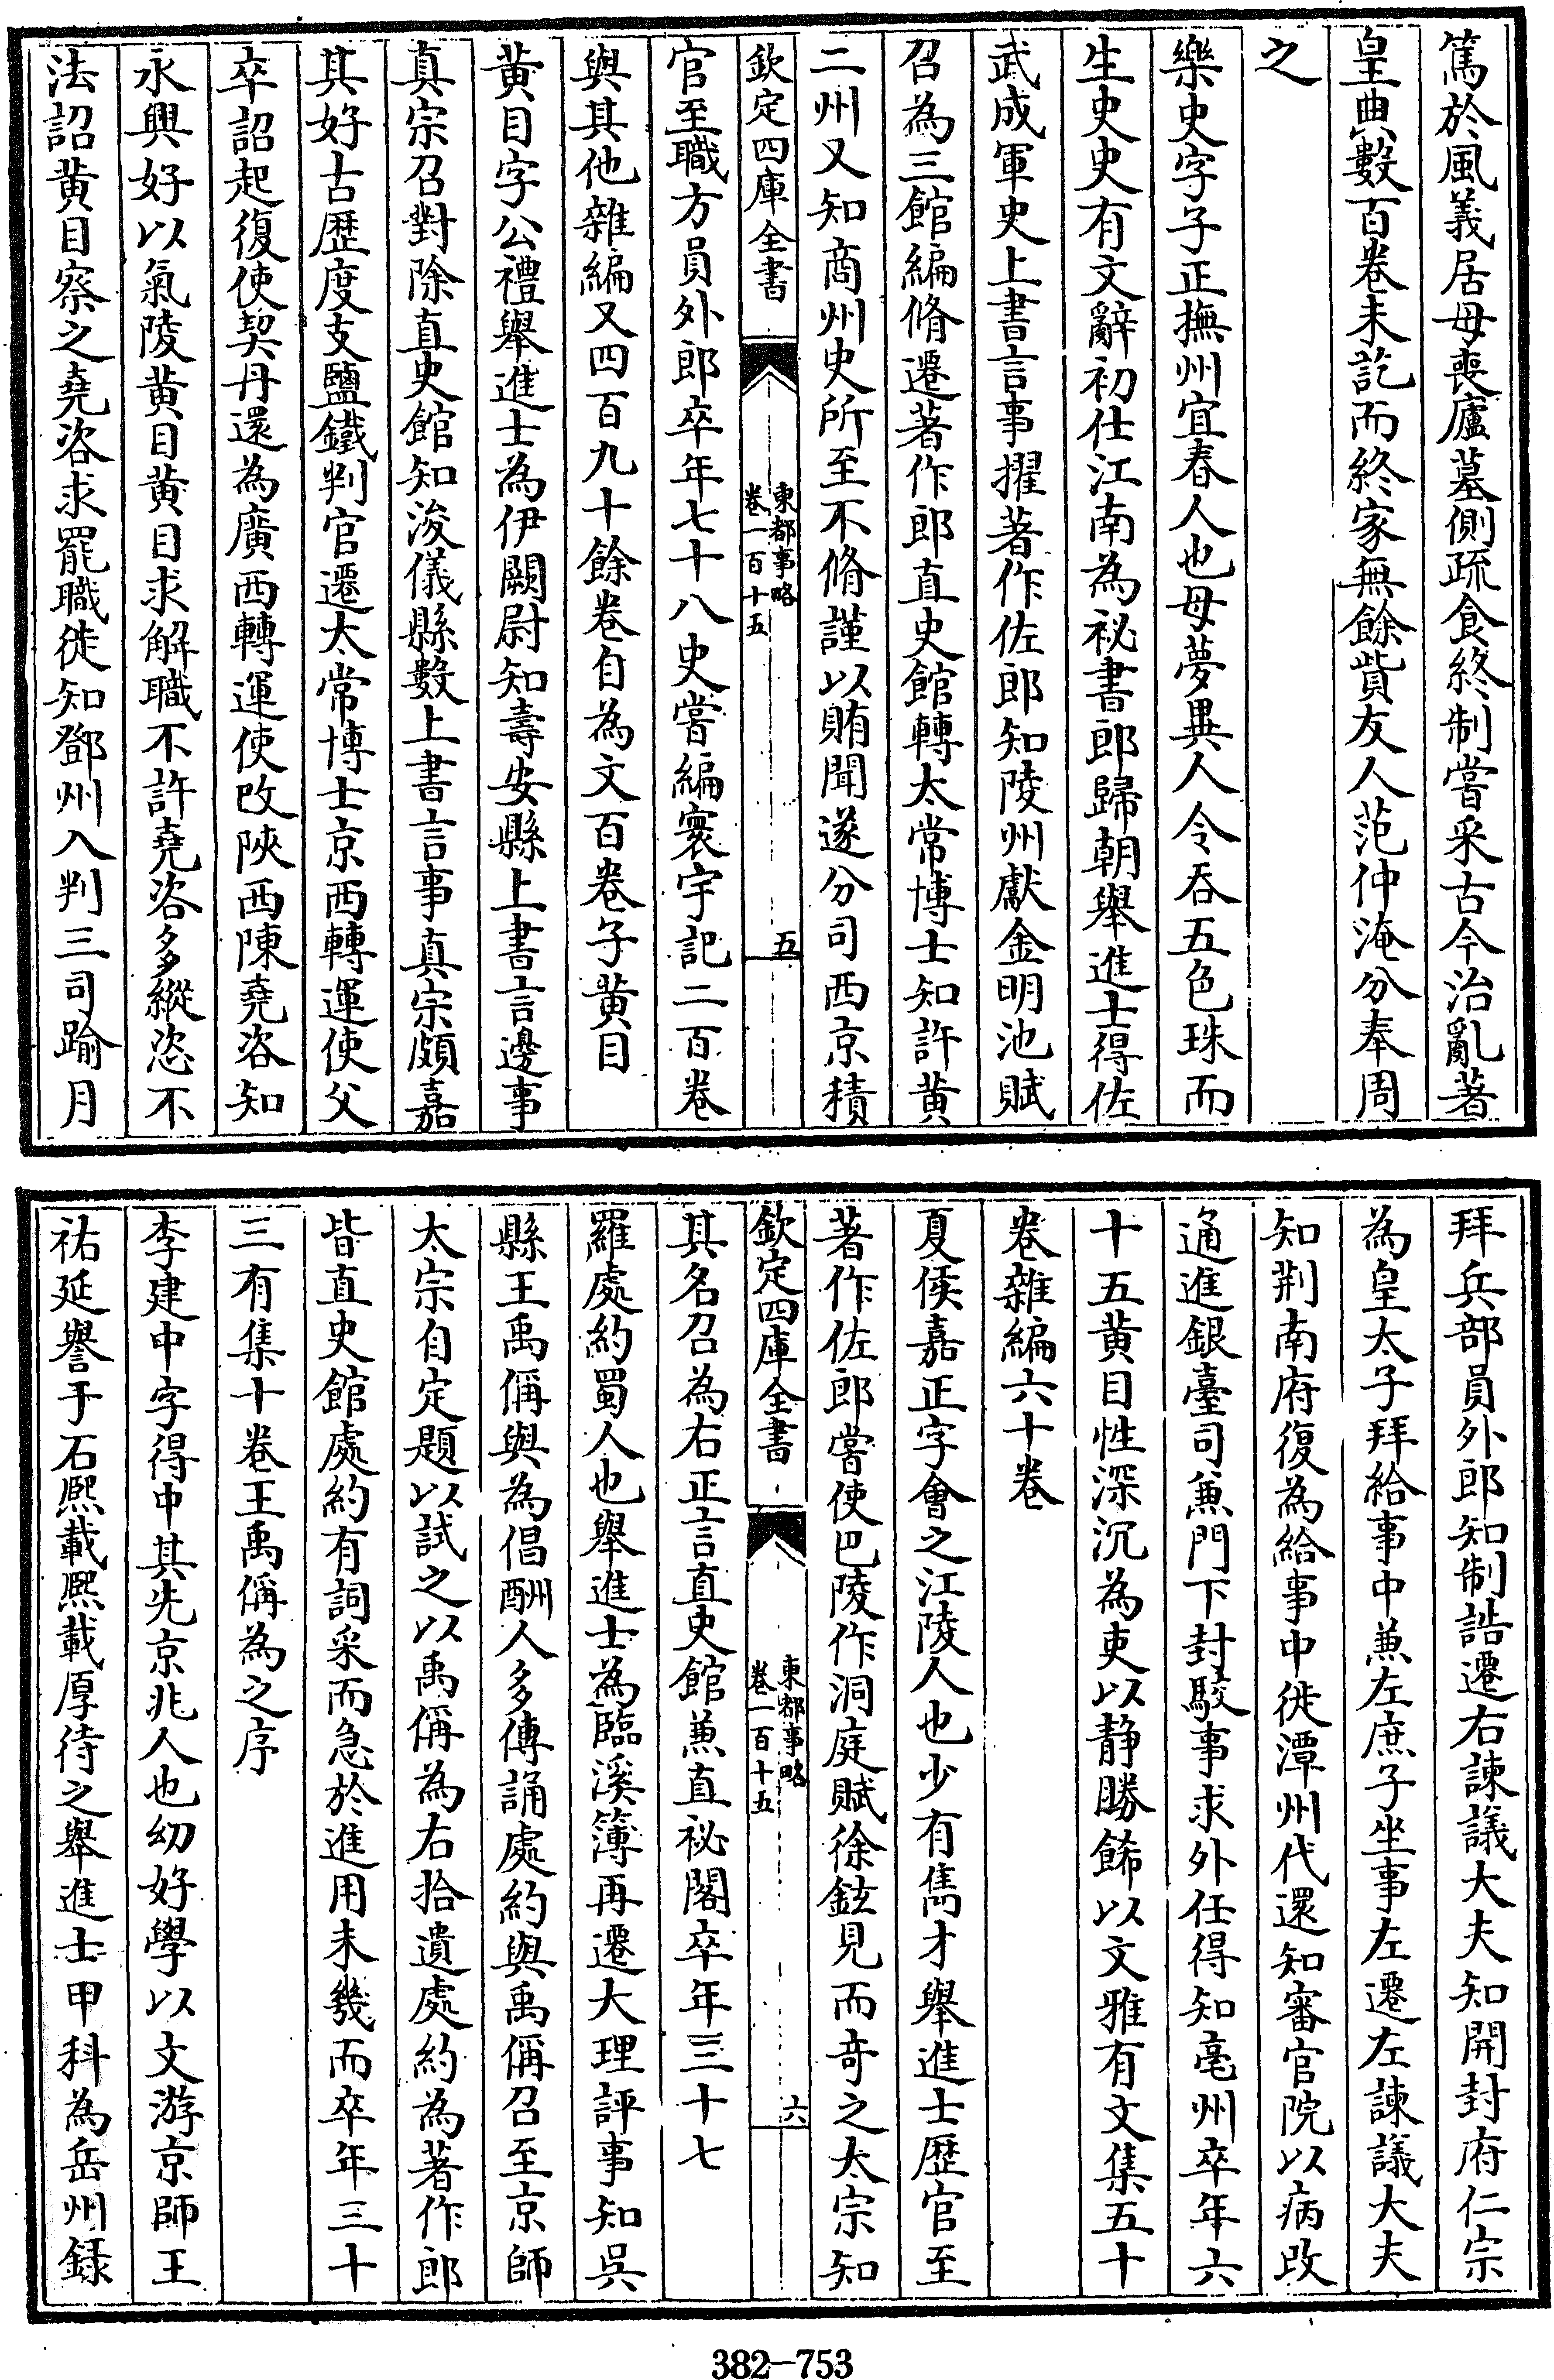 篤於風義居母喪廬墓側疏食終制嘗采古今治亂著
皇典數百卷未訖而終家無餘貲友人范仲淹分奉周
之
樂史字子正撫州宜春人也母夢異人令吞五色珠而
生史史有文辭初仕江南為祕書郎歸朝舉進士得佐
武成軍史上書言事擢著作佐郎知陵州獻金明池賦
召為三館編脩遷著作郎直史館轉太常博士知許黄
二州又知商州史所至不脩謹以賄聞遂分司西京積
欽定四庫全書
東都事略
卷一百十五
五
官至職方員外郎卒年七十八史嘗編寰宇記二百卷
與其他雜編又四百九十餘卷自為文百卷子黄目
黄目字公禮舉進士為伊闕尉知壽安縣上書言邊事
真宗召對除直史館知浚儀縣數上書言事真宗頗嘉
其好古歴度支鹽鐵判官遷太常博士京西轉運使父
卒詔起復使契丹還為廣西轉運使改陜西陳堯咨知
永興好以氣陵黄目黄目求解職不許堯咨多縱恣不
法詔黄目察之堯咨求罷職徙知鄧州入判三司踰月
拜兵部員外郎知制誥遷右諫議大夫知開封府仁宗
為皇太子拜給事中兼左庶子坐事左遷左諫議大夫
知荆南府復為給事中徙潭州代還知審官院以病改
通進銀臺司兼門下封駮事求外任得知亳州卒年六
十五黄目性深沉為吏以静勝餙以文雅有文集五十
卷雜編六十卷
夏侯嘉正字會之江陵人也少有雋才舉進士歴官至
著作佐郎嘗使巴陵作洞庭賦徐鉉見而奇之太宗知
欽定四庫全書
東都事略
卷一百十五
六
其名召為右正言直史館兼直祕閣卒年三十七
羅處約蜀人也舉進士為臨溪簿再遷大理評事知吳
縣王禹偁與為倡酬人多傳誦處約與禹偁召至京師
太宗自定題以試之以禹偁為右拾遺處約為著作郎
皆直史館處約有詞采而急於進用未幾而卒年三十
三有集十卷王禹偁為之序
李建中字得中其先京兆人也幼好學以文游京師王
祐延譽于石熈載熈載厚待之舉進士甲科為岳州録
382-753